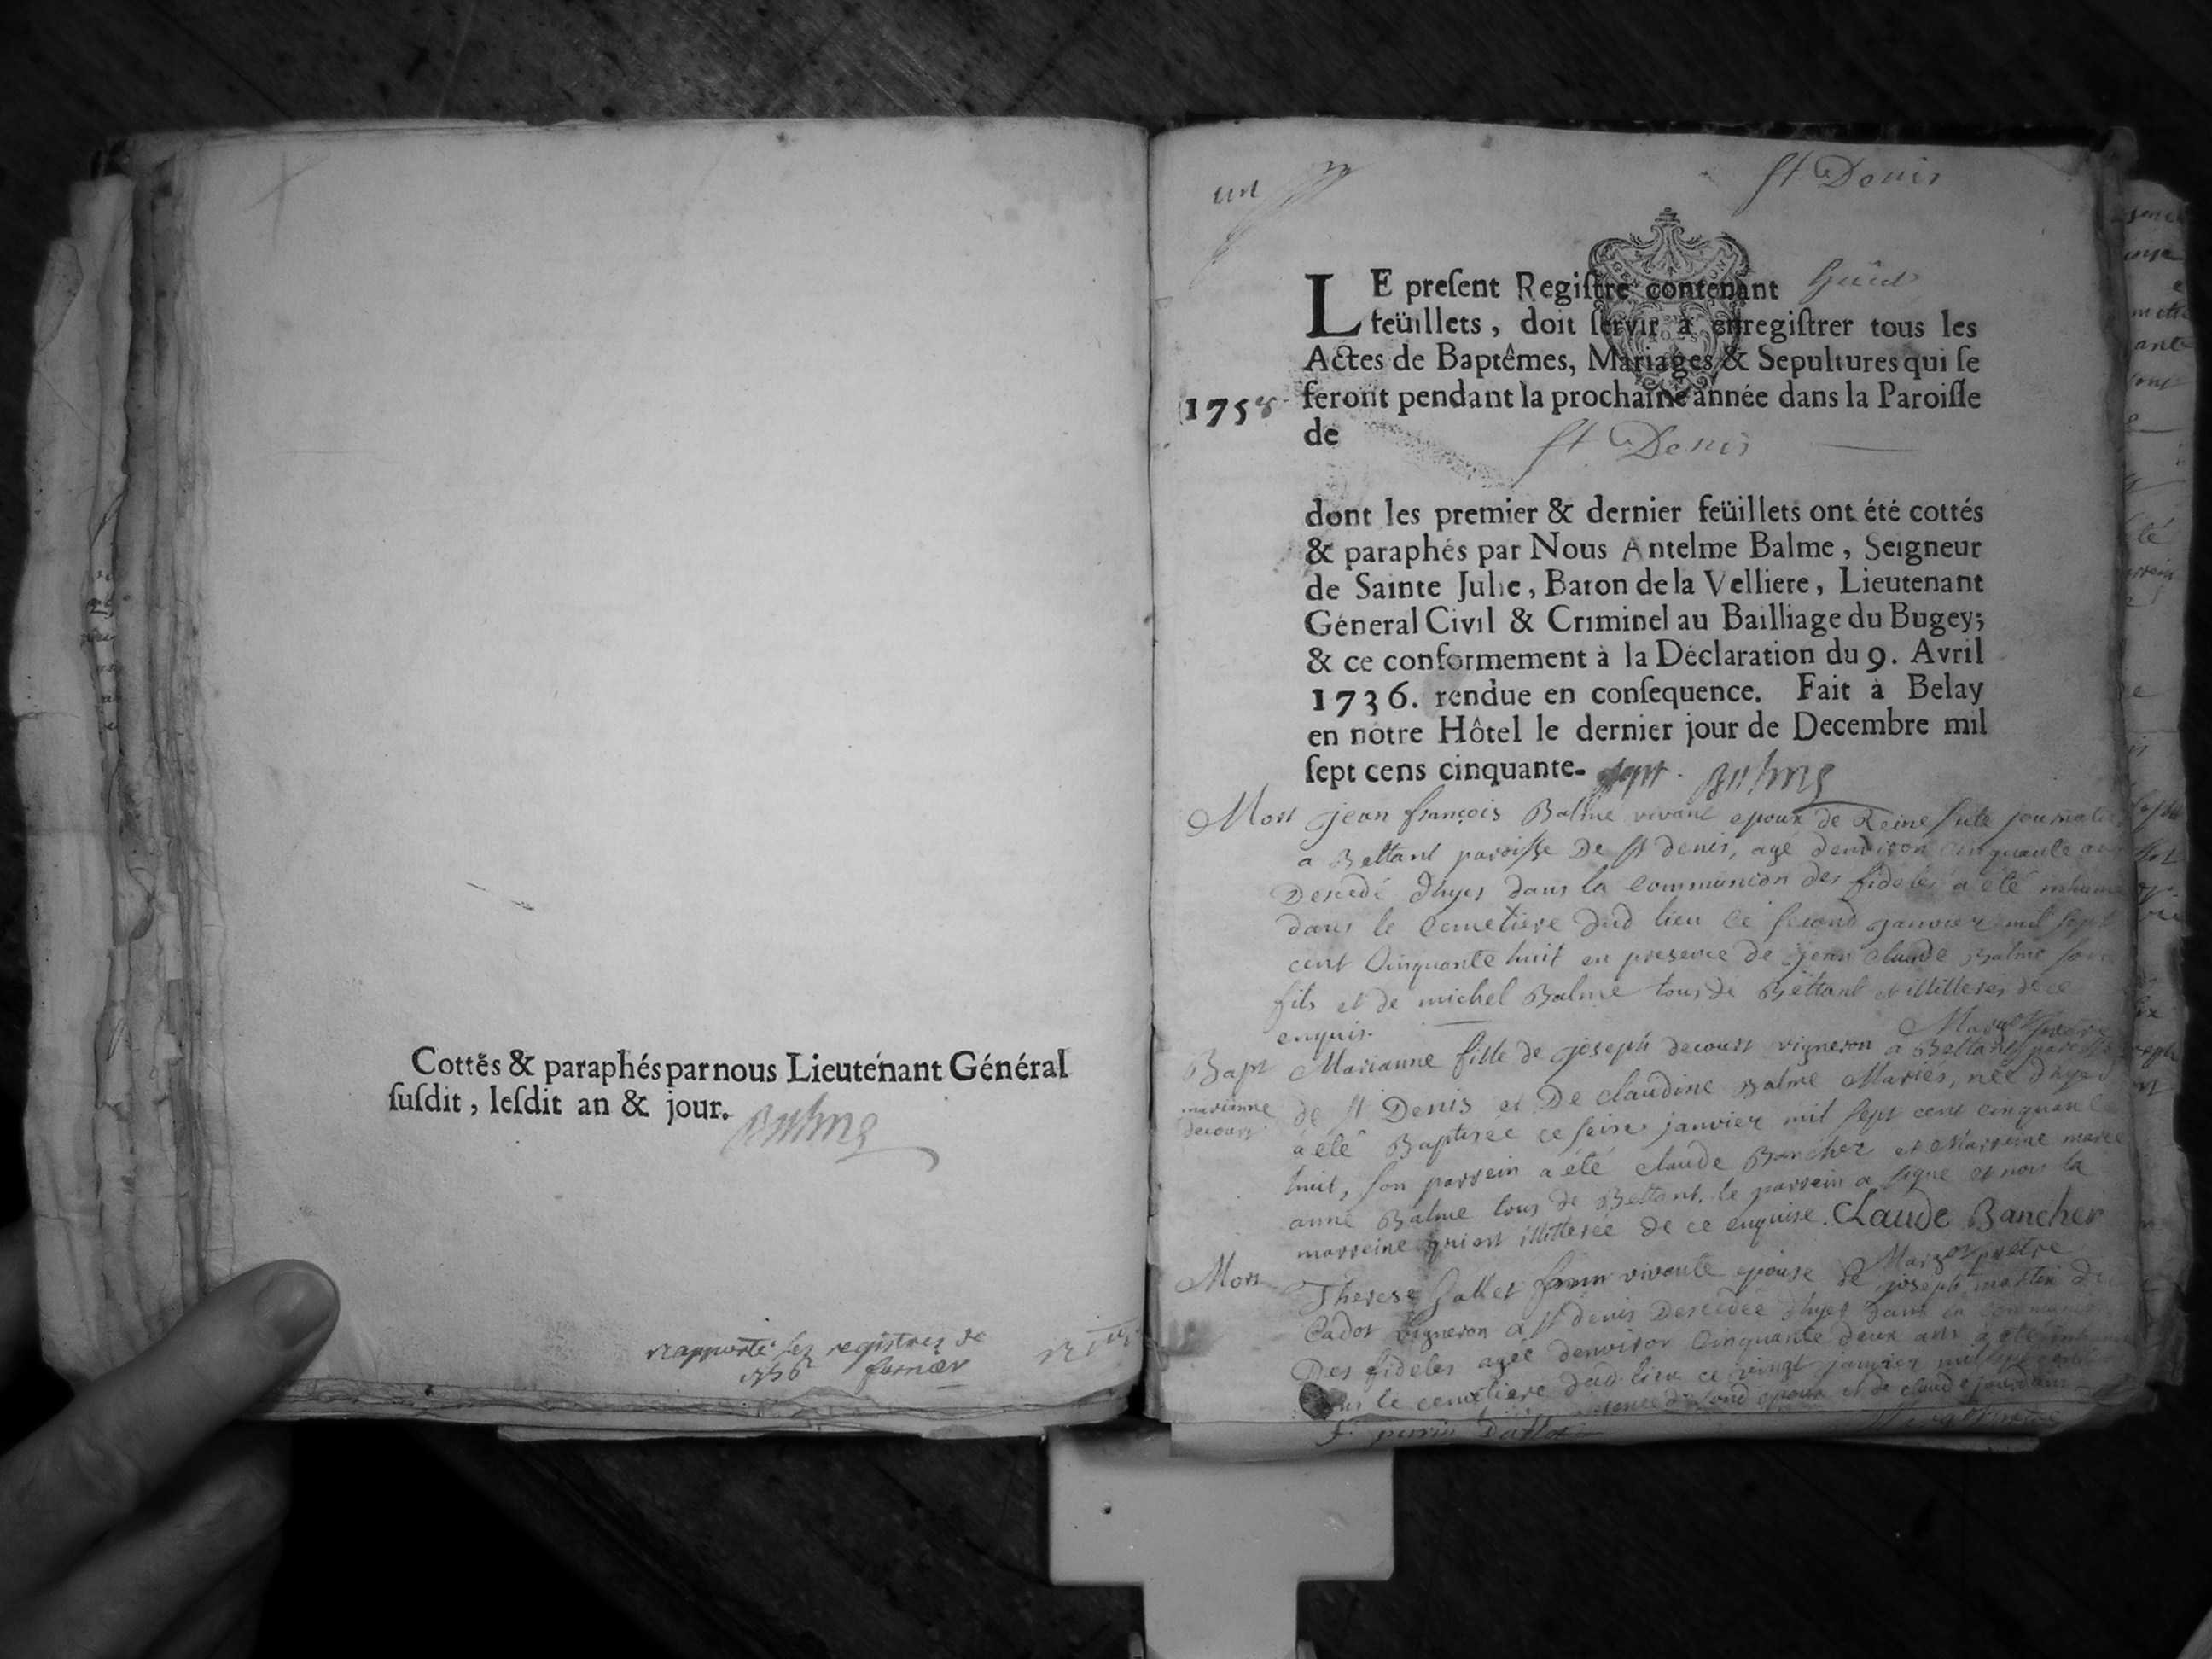 Cottés & paraphés par nous Lieutenant Général
susdit, lesdit an & jour. Balme
rapporté les registres de
1756
un
St Denis
LE present Registre contenant huit
feüillets, doit servir à enregistrer tous les
Actes de Baptêmes, Mariages & Sepultures qui se
feront pendant la prochaine année dans la Paroisse
1758
de St Denis
dont les premier & dernier feüillets ont été cottés
& paraphés par Nous Antelme Balme, Seigneur
de Sainte Julie, Baron de la Velliere, Lieutenant
Géneral Civil & Criminel au Bailliage du Bugey;
& ce conformement à la Déclaration du 9. Avril
1736. rendue en consequence. Fait à Belay
en nôtre Hôtel le dernier jour de Decembre mil
sept cens cinquante- sept. Balme
Mort jean françois Balme vivant epoux de Reine
a Bettant paroisse De st denis, agé denviron cinquante
Decedé dhyer dans la Communion des fideles a été inhumé
dans le Cemetiere dud lieu ce second janvier mil sept
cent Cinquante huit en presence de jean claude Balme son
fils et de michel Balme tous de Bettant et illitteres de ce
enquis. Marget pretre
Bapt Marianne fille de joseph decourt vigneron a Bettant paroisse
marianne decourt
de st Denis et De claudine Balme Mariés, née dhyer
a été Baptisée ce seize janvier mil sept cent cinquante
huit, son parrein a été claude Bancher et Marreine marie
anne Balme tous de Bettant. le parrein a signé et non la
marreine qui est illitterée de ce enquise. Claude Bancher
Mort Therese vivante epouse de joseph martin
Cadot vigneron a st denis Decedée dhyer dans la Communion
Des fideles agée denviron Cinquante deux ans a été
dans le cemetiere dud lieu ce vingt janvier mil sept cent
dud epoux et de claude